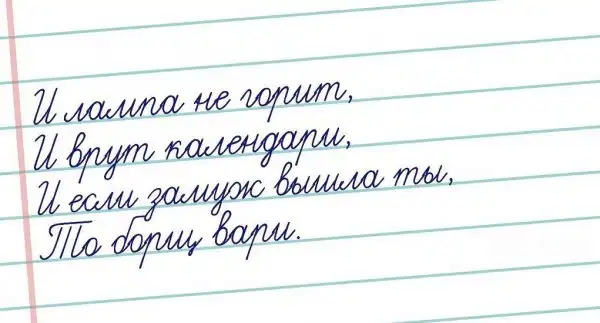 И лампа не горит,
И врут календари,
И если замуж вышла ты,
То борщ вари.